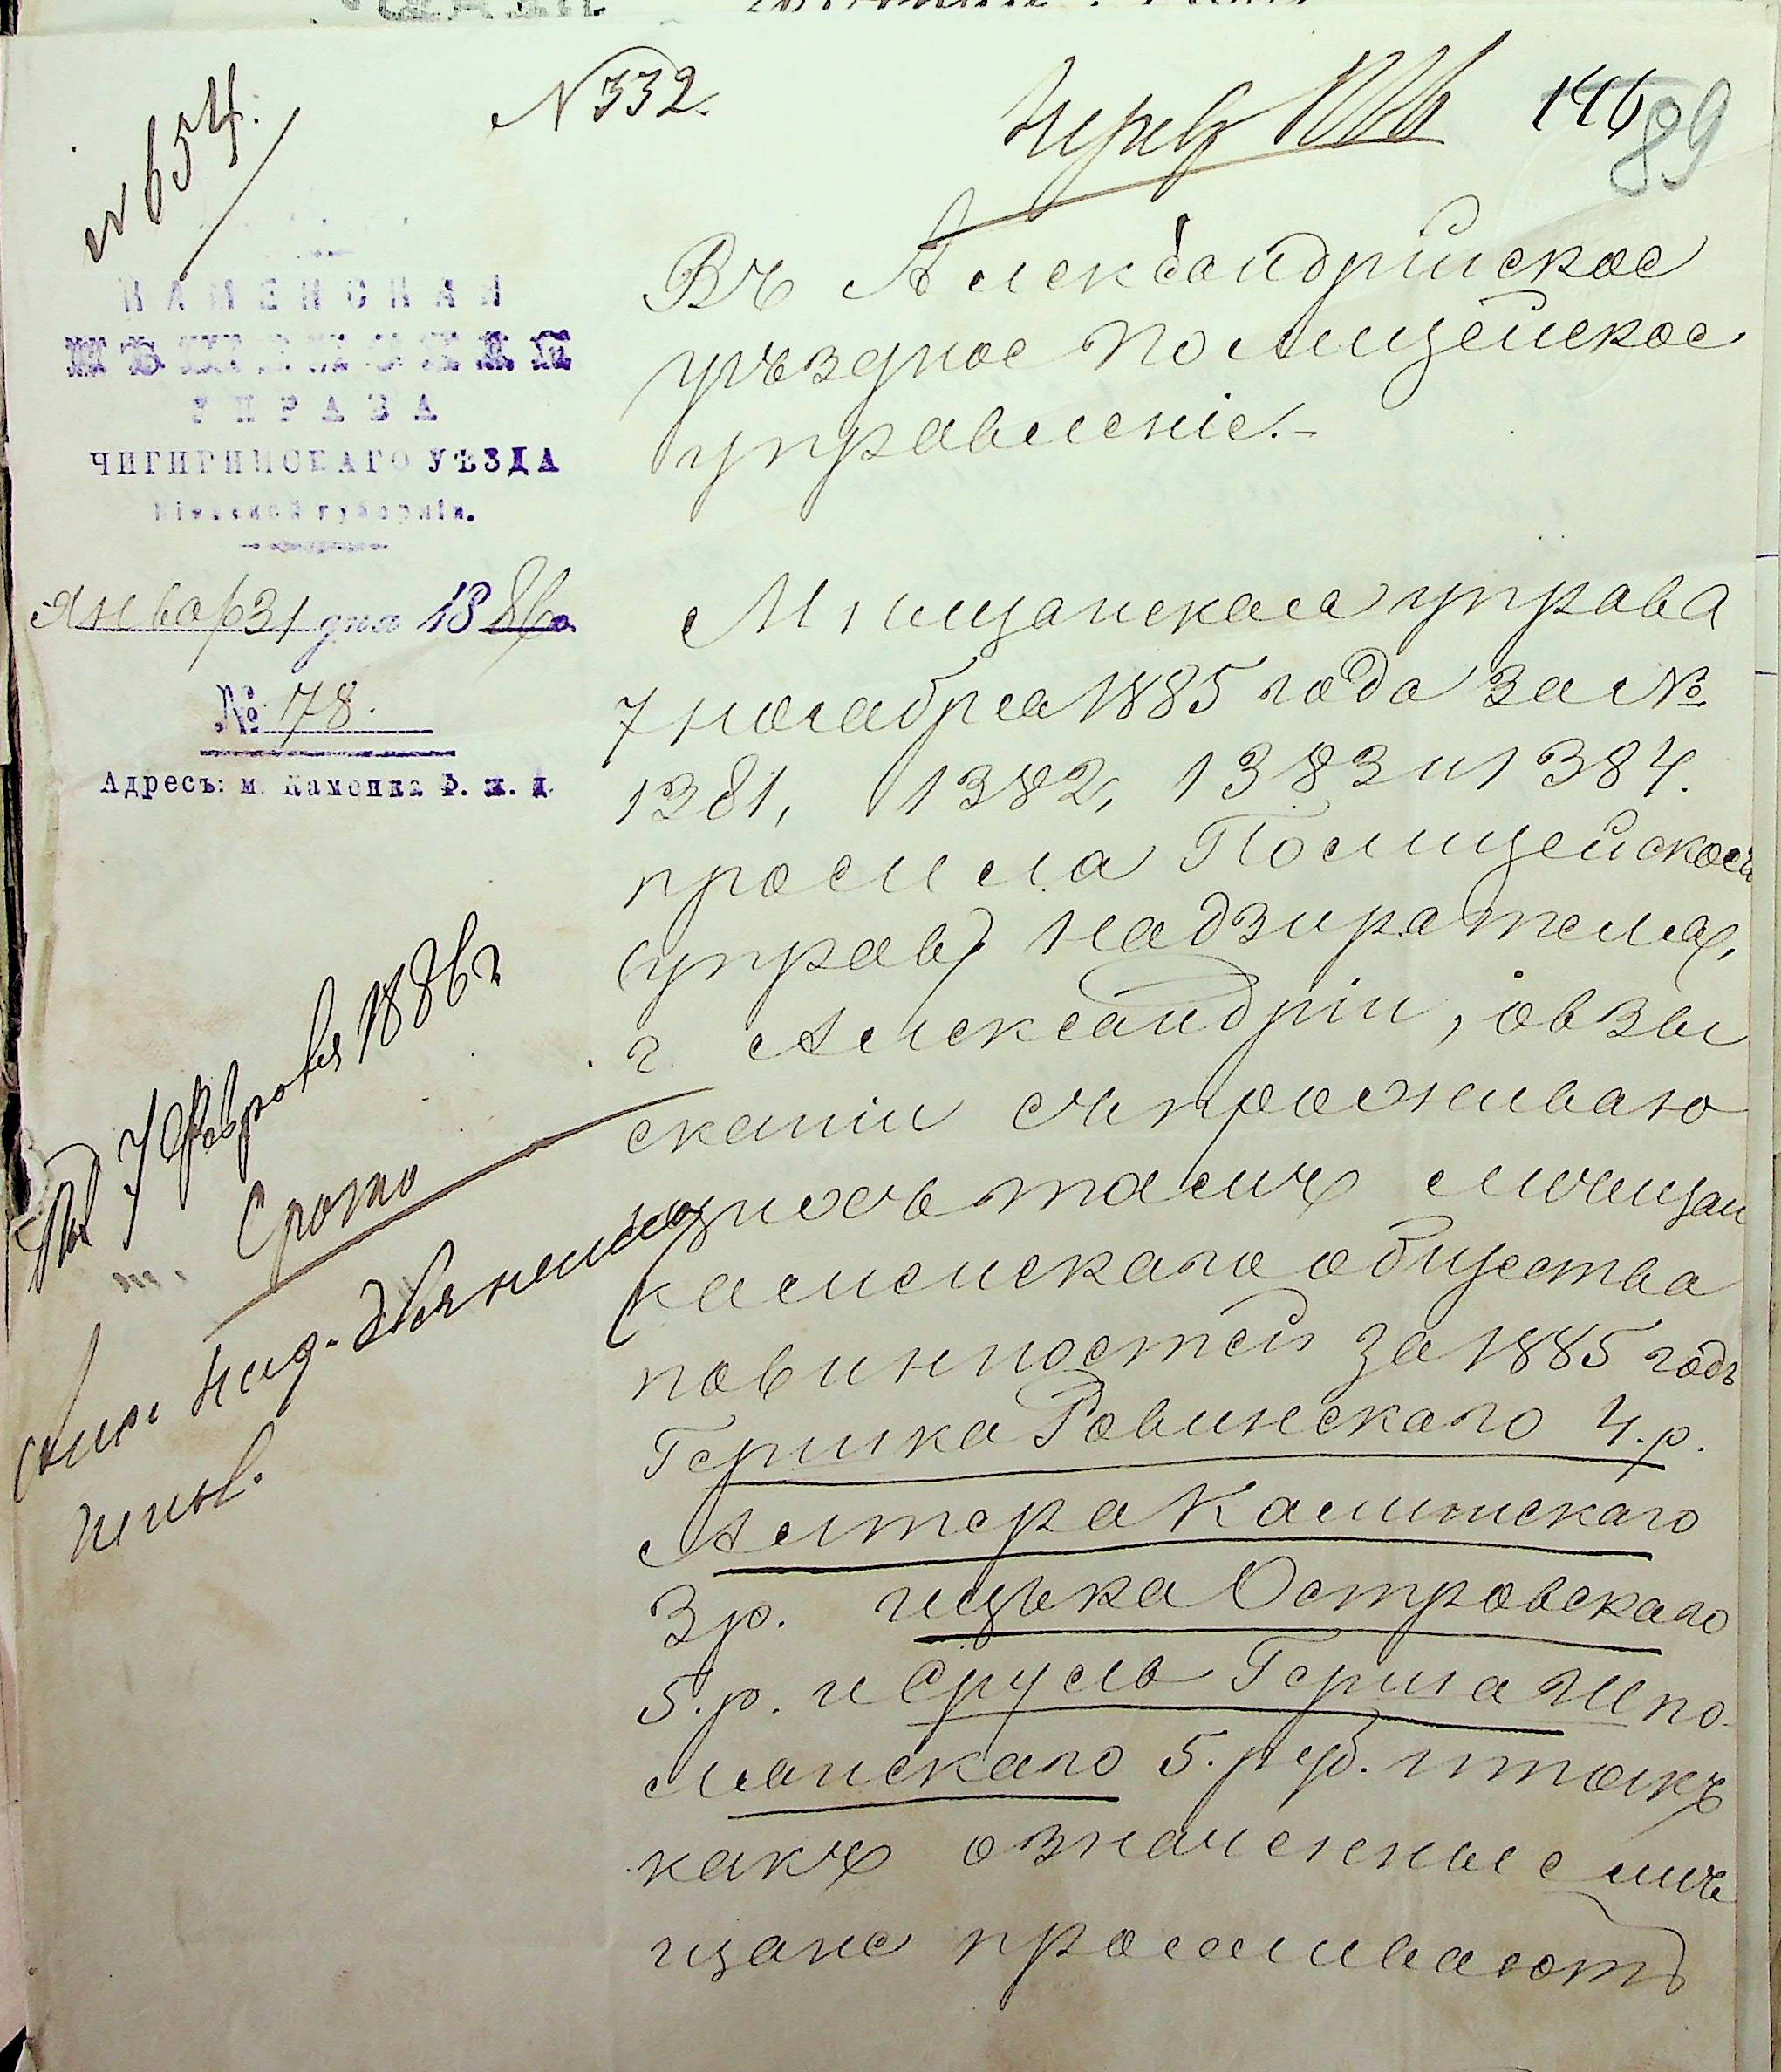 № 654.
№ 332.
146
89
КАМЕНСКАЯ
МѢЩАНСКАЯ
УПРАВА
ЧИГИРИНСКАГО УѢЗДА
Кіевской губерніи.
Январ 31 дня 1886 г.
№ 78.
Адресъ: м. Каменка Ф. ж. д.
Въ Александрійское
уѣздное Полицейское
управленіе.-
Мѣщанская управа
7 ноября 1885 года за №
1381, 1382, 1383 и 1384.
просила Полицейскаго
(управ) Надзирателя,
г. Александріи, о взы
сканіи съ проживаю
щихъ тамъ мѣщан
каменскаго общества
повинностей за 1885 годъ
Гершка Ровинскаго 4.р.
Алтера Каминскаго
3 р. Ицька Островскаго
5.р. и Сруль Герша Шпо-
лянскаго 5.руб. и такъ
какъ означенные мѣ
щане проживаютъ
7 Февраля 1886 г
Срочно